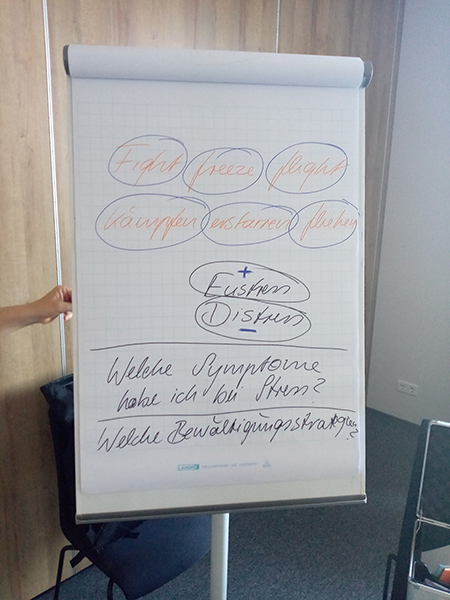 Fight freeze flight
kämpfen erstarren fliehen
+
Eustress
Distress
−
Welche Symptome
habe ich bei Stress?
Welche Bewältigungsstrategien?